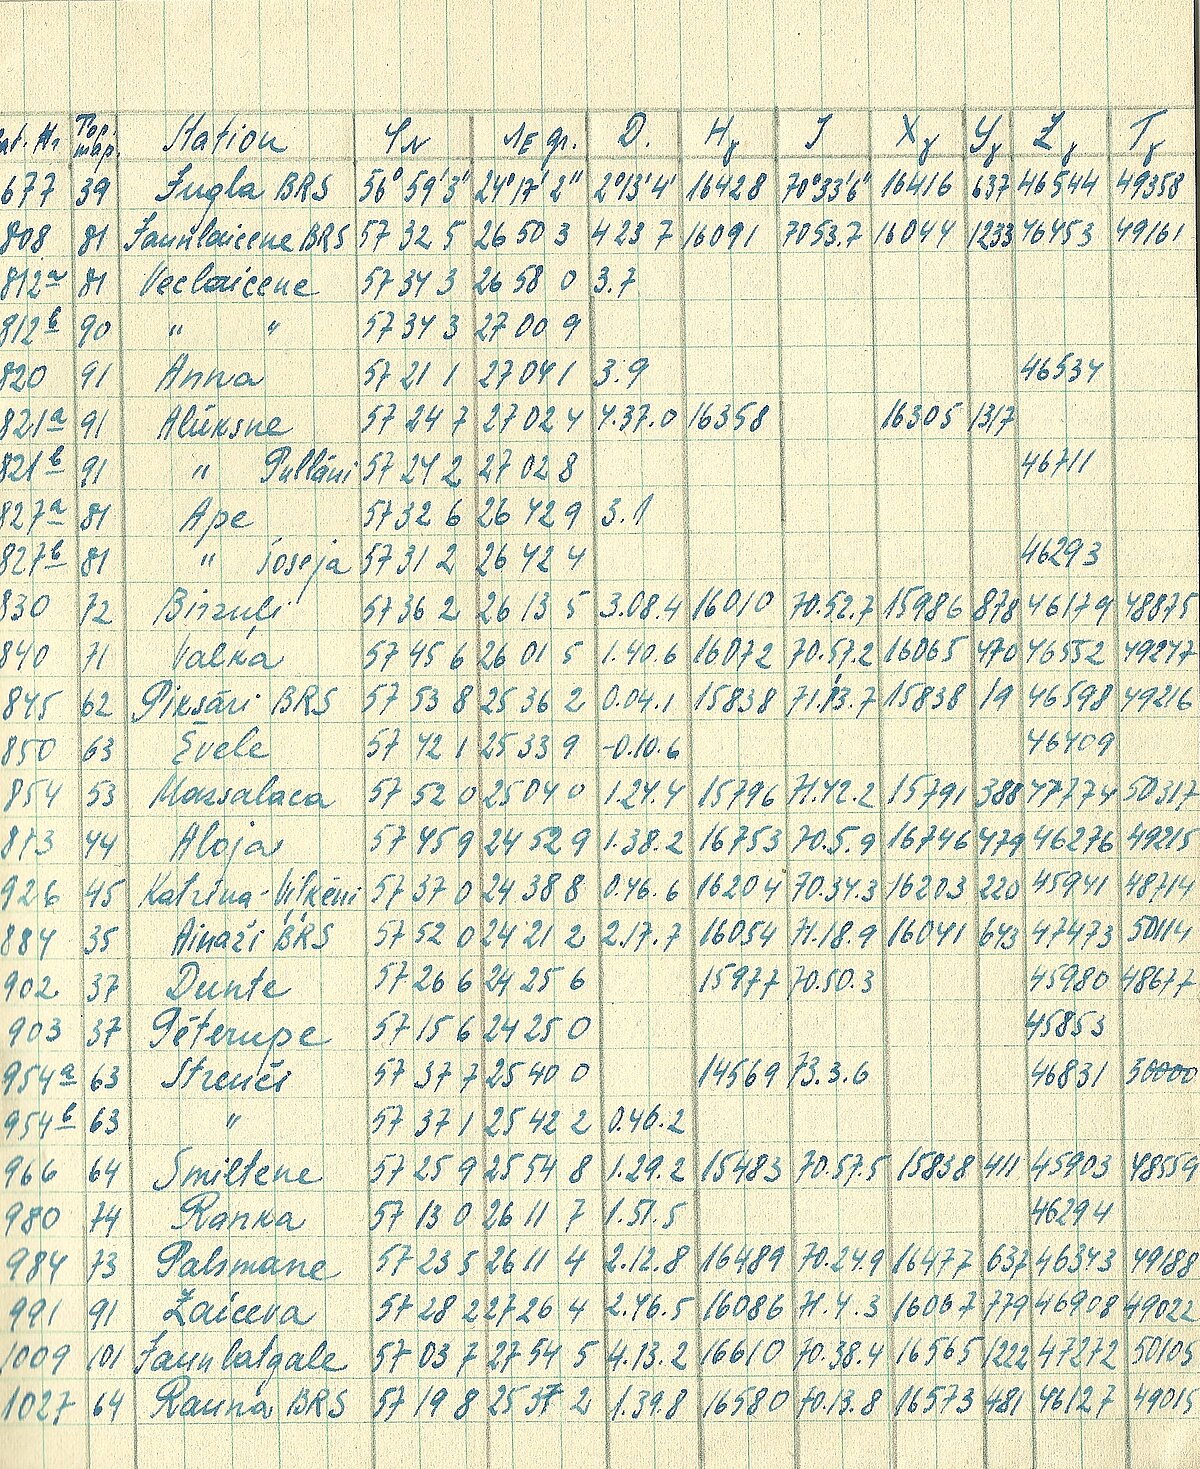 Kat. Nr Top. map. Station φN λE gr. D. Hγ I Xγ Yγ Zγ Tγ
677 39 Jugla BRS 56° 59' 3' 24° 17' 2" 2° 13' 4' 16428 70° 33' 6" 16416 637 46544 49358
808 81 Jaunlaicene BRS 57 32 5 26 50 3 4 23 7 16091 70 53.7 16044 1233 46453 49161
812a 81 Veclaicene 57 34 3 26 58 0 3.7
812b 90 " " 57 34 3 27 00 9
820 91 Anna 57 21 1 27 04 1 3.9 46534
821a 91 Alūksne 57 24 7 27 02 4 4.37.0 16358 16305 1317
821b 91 " Pullāni 57 24 2 27 02 8 46711
827a 81 Ape 57 32 6 26 42 9 3.1
827b 81 " 57 31 2 26 42 4 46293
830 72 Birzuļi 57 36 2 26 13 5 3.08.4 16010 70.52.7 15986 878 46179 48875
840 71 Valka 57 45 6 26 01 5 1.40.6 16072 70.57.2 16065 470 46552 49247
845 62 Piksāri BRS 57 53 8 25 36 2 0.04.1 15838 71.13.7 15838 19 46598 49216
850 63 Ēvele 57 42 1 25 33 9 -0.10.6 46409
854 53 Mazsalaca 57 52 0 25 04 0 1.24.4 15796 71.42.2 15791 388 47774 50317
873 44 Aloja 57 45 9 24 52 9 1.38.2 16753 70.5.9 16746 479 46276 49215
926 45 Katrīna-Vitkēni 57 37 0 24 38 8 0.46.6 16204 70.34.3 16203 220 45941 48714
884 35 Ainaži BRS 57 52 0 24 21 2 2.17.7 16054 71.18.9 16041 643 47473 50114
902 37 Dunte 57 26 6 24 25 6 15977 70.50.3 45980 48677
903 37 Pēterupe 57 15 6 24 25 0 45853
954a 63 Strenči 57 37 7 25 40 0 14569 73.3.6 46831 50000
954b 63 " 57 37 1 25 42 2 0.46.2
966 64 Smiltene 57 25 9 25 54 8 1.29.2 15483 70.57.5 15838 411 45903 48559
980 74 Ranka 57 13 0 26 11 7 1.51.5 46294
984 73 Palsmane 57 23 5 26 11 4 2.12.8 16489 70.24.9 16477 637 46343 49188
991 91 Žaiceva 57 28 2 27 26 4 2.46.5 16086 71.4.3 16067 779 46908 49022
1009 101 Jaunlatgale 57 03 7 27 54 5 4.13.2 16610 70.38.4 16565 1222 47272 50105
1027 64 Rauna BRS 57 19 8 25 37 2 1.39.8 16580 70.13.8 16573 481 46127 49015